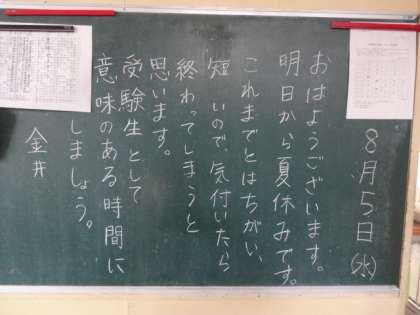 8月5日(水)
おはようございます。
明日から夏休みです。
これまでとはちがい、
短いので、気付いたら
終わってしまうと
思います。
受験生として
意味のある時間に
しましょう。
金井